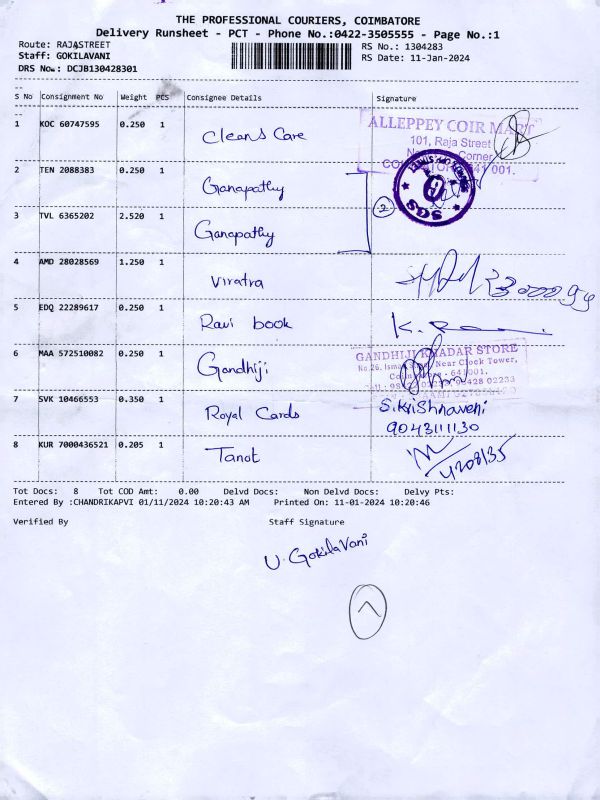 THE PROFESSIONAL COURIERS, COIMBATORE
Delivery Runsheet - PCT - Phone No.:0422-3505555 - Page No.:1
Route: RAJASTREET
RS No.: 1304283
Staff: GOKILAVANI
RS Date: 11-Jan-2024
DRS No.: DCJB130428301
S No Consignment No Weight PCS Consignee Details Signature
1 KOC 60747595 0.250 1 Cleans Care
ALLEPPEY COIR MART
101, Raja Street
Corner
641 001.
2 TEN 2088383 0.250 1 Ganapathy
SGS
2
3 TVL 6365202 2.520 1 Ganapathy
4 AMD 28028569 1.250 1 Viratra
5 EDQ 22289617 0.250 1 Ravi book
6 MAA 572510082 0.250 1 Gandhiji
GANDHIJI KHADAR STORE
Near Clock Tower,
641001.
7 SVK 10466553 0.350 1 Royal Cards
S.Krishnaveni
9043111130
8 KUR 7000436521 0.205 1 Tanot
Tot Docs: 8 Tot COD Amt: 0.00 Delvd Docs: Non Delvd Docs: Delvy Pts:
Entered By :CHANDRIKAPVI 01/11/2024 10:20:43 AM Printed On: 11-01-2024 10:20:46
Verified By Staff Signature
U. GokilaVani